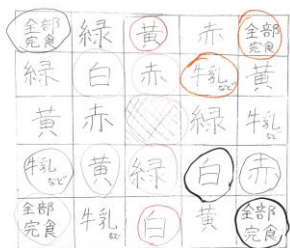 全部完食 緑 黄 赤 全部完食
緑 白 赤 牛乳など 黄
黄 赤 緑 牛乳など
牛乳など 黄 緑 白 赤
全部完食 牛乳など 白 黄 全部完食